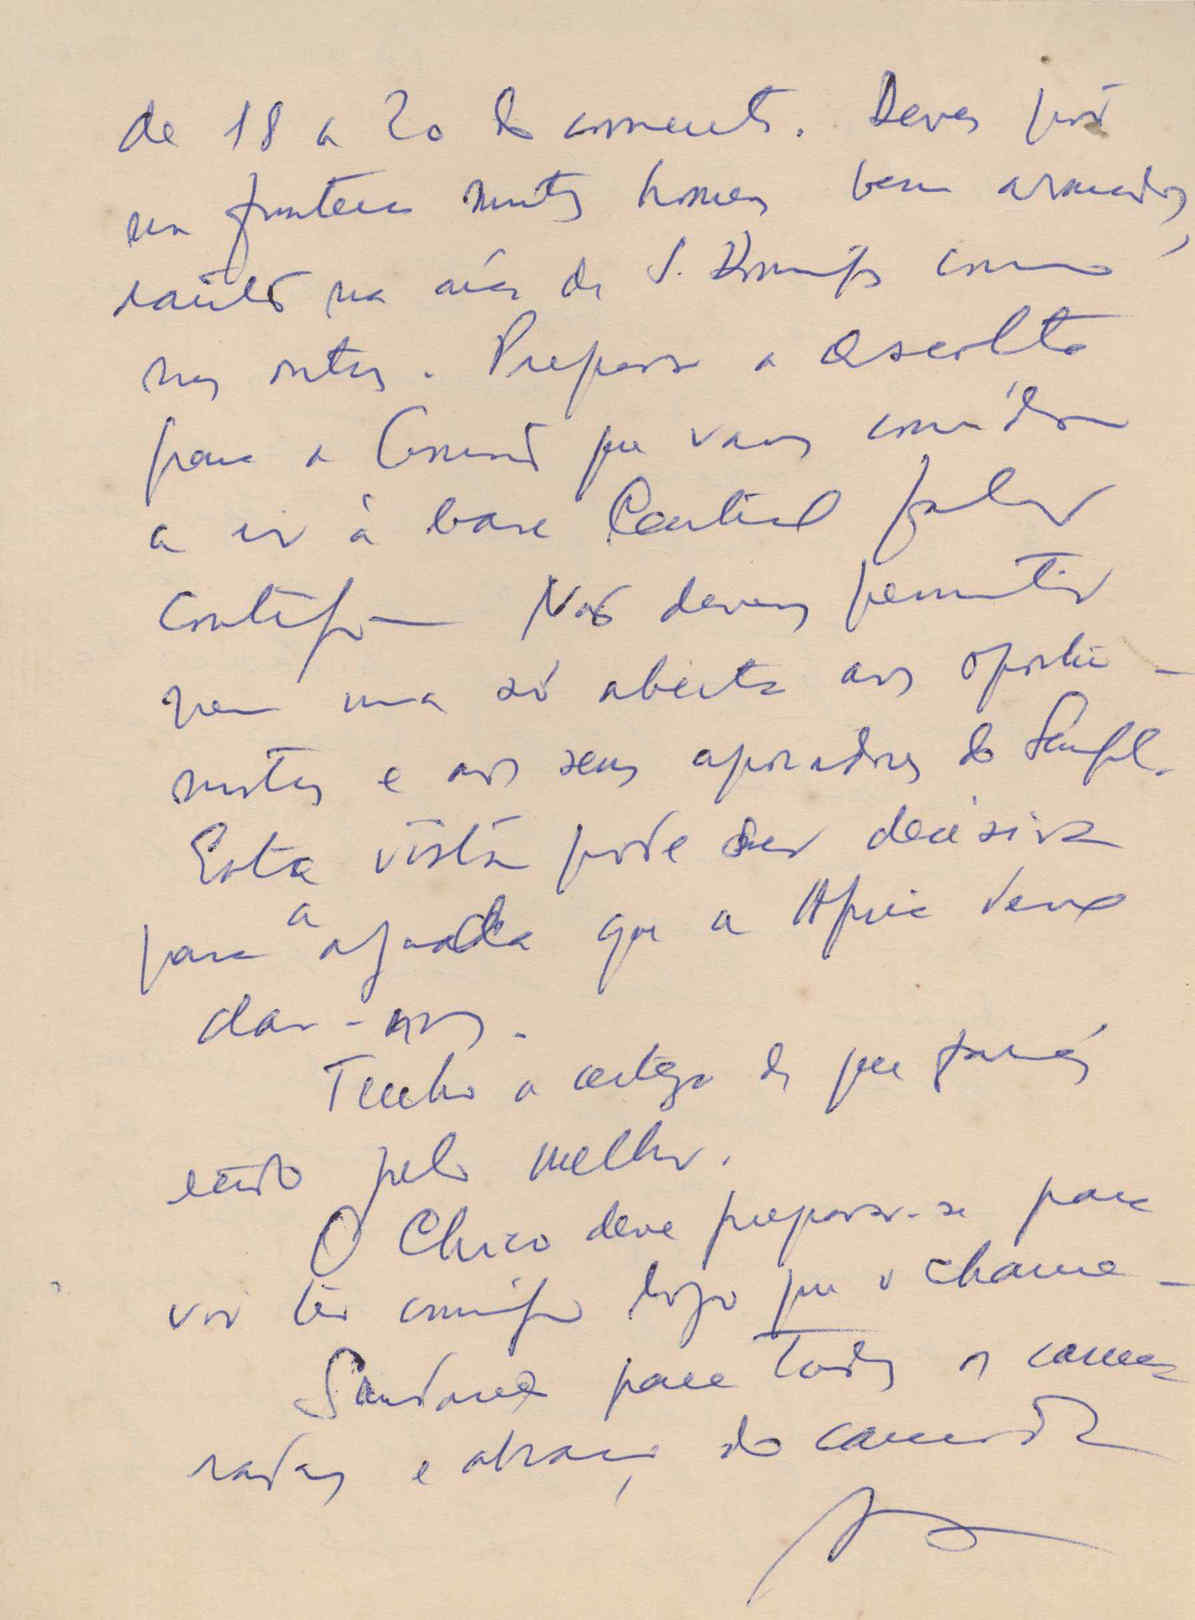 de 18 a 20 do corrente. Deves pôr
na fronteira muitos homens bem armados,
tanto na área de S. Domingos como
nas outras. Prepara a escolta
para a que vamos convidar
a ir à base Central falar
contigo — Não devemos permitir
nem uma só aberta aos oportu-
nistas e aos seus apoiadores do Senegal.
Esta visita pode ser decisiva
para a ajuda que a África deve
dar-nos.
Tenho a certeza de que farás
tudo pelo melhor.
O Chico deve preparar-se para
vir ter comigo logo que o chame —
Saudações para todos os cama
radas e abraço do camarada